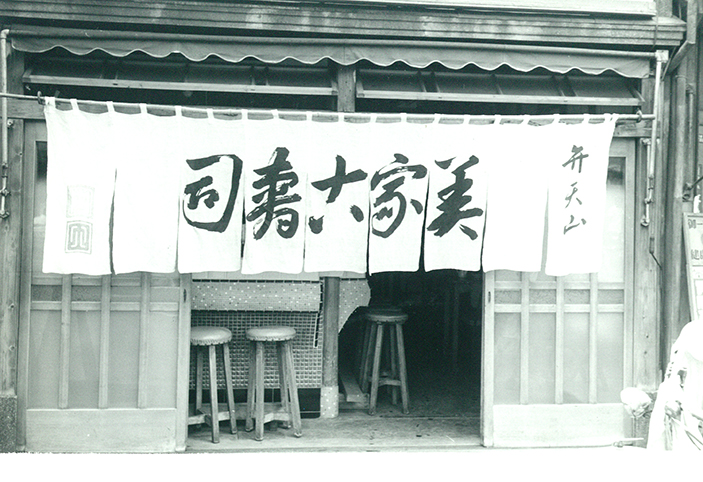 弁天山
美家古壽司